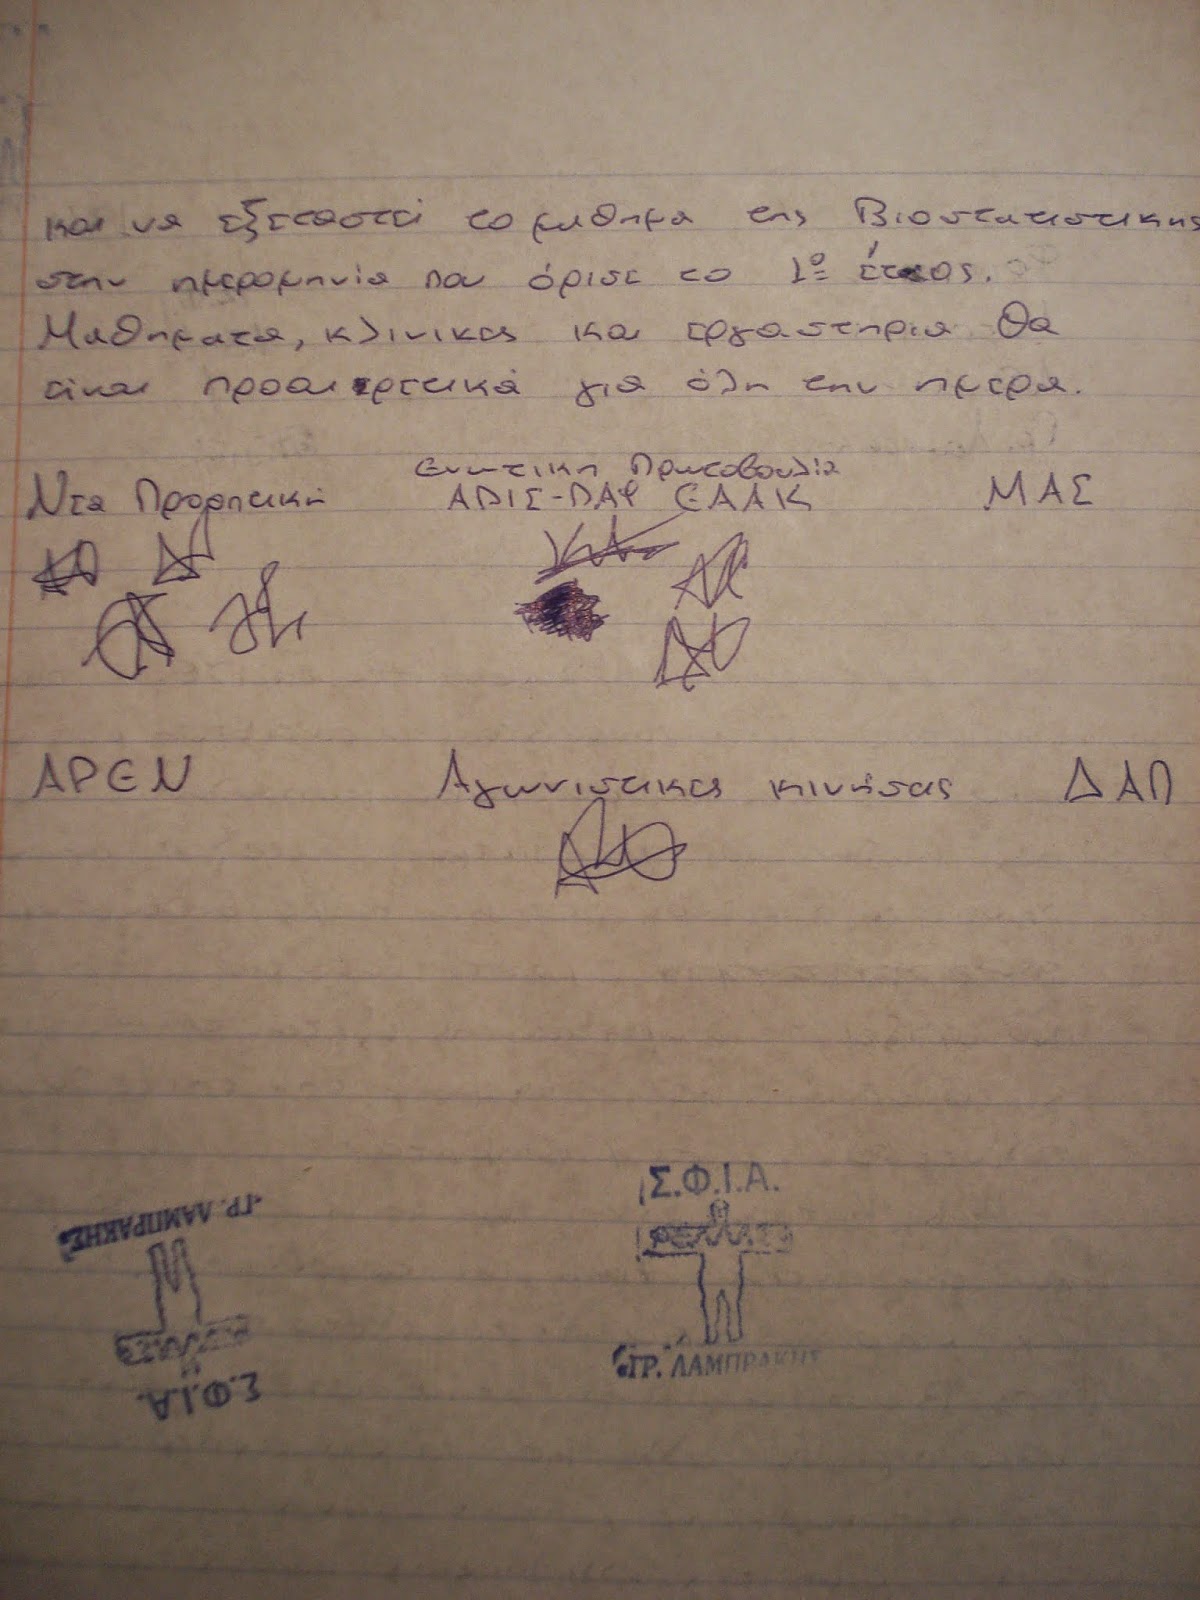 και να εξεταστεί το μαθημα της Βιοστατιστικης
στην ημερομηνία που όρισε το 1º έτος.
Μαθηματα, κλινικες και εργαστηρια θα
είναι προαιρετικά για όλη την ημερα.
Νεα Προοπτική
Ενωτικη Πρωτοβουλία
ΑΠΙΣ-ΠΑΨ ΕΑΑΚ
ΜΑΣ
ΑΡΕΝ
Αγωνιστικες κινήσεις
ΔΑΠ
Σ.Φ.Ι.Α.
"ΓΡ. ΛΑΜΠΡΑΚΗΣ
"ΓΡ. ΛΑΜΠΡΑΚΗΣ"
Σ.Φ.Ι.Α.